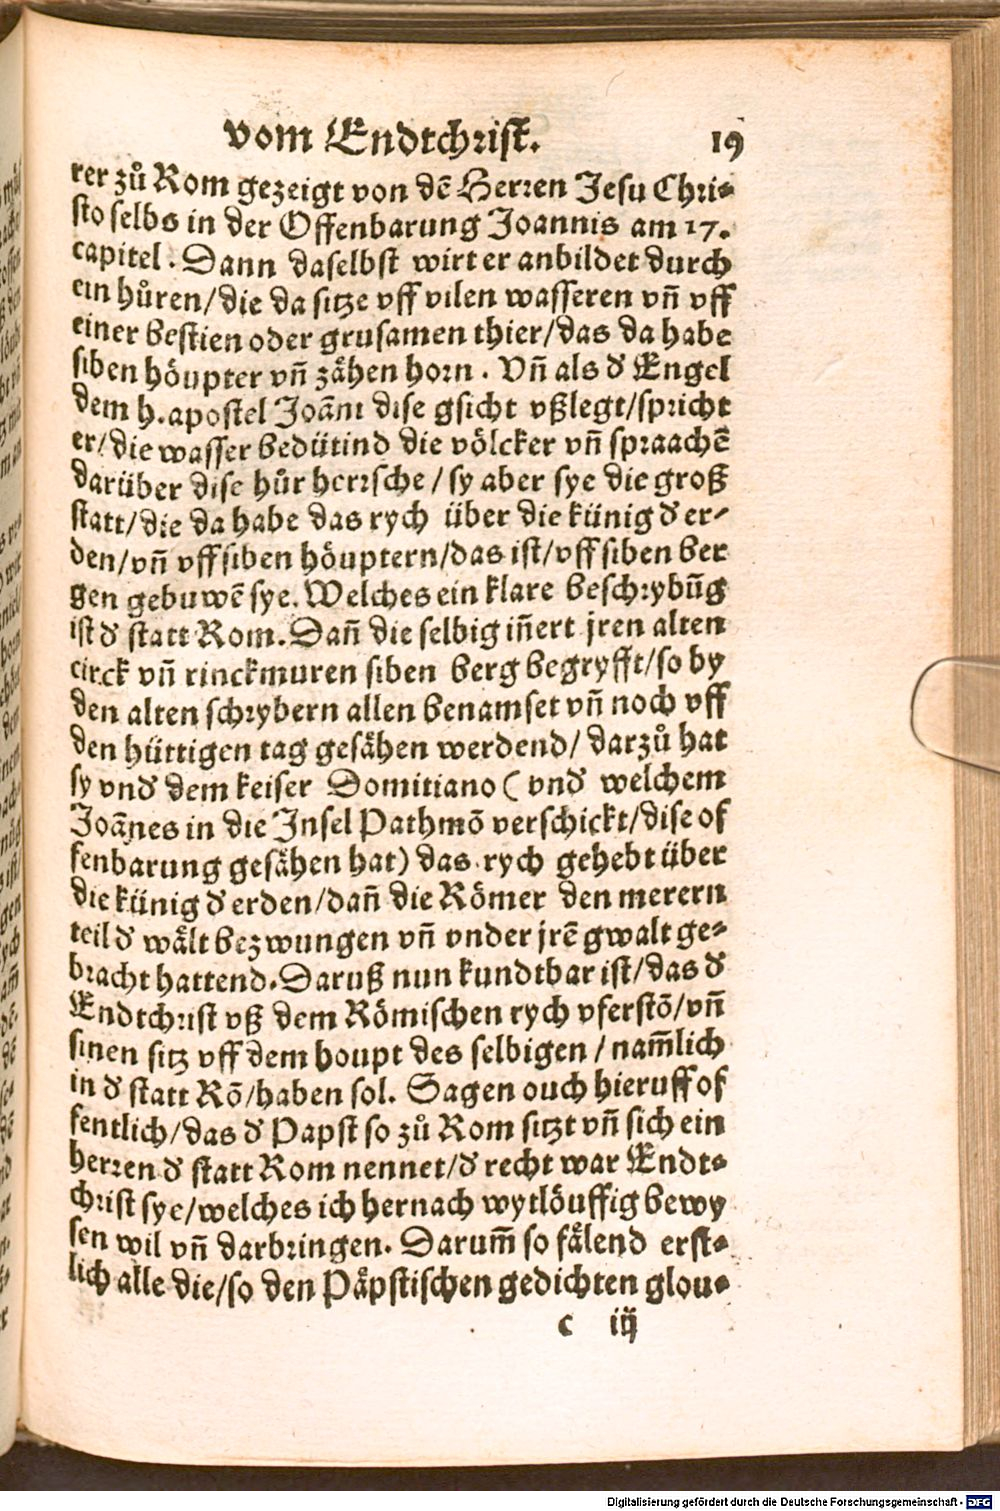 vom Endtchrist. 19
rer zuͦ Rom gezeigt von dē Herren Jesu Chri-
sto selbs in der Offenbarung Joannis am 17.
capitel. Dann daselbst wirt er anbildet durch
ein huͦren/die da sitze vff vilen wasseren vñ vff
einer bestien oder grusamen thier/das da habe
siben höupter vñ zähen horn. Vñ als d' Engel
dem h. apostel Joāni dise gsicht vßlegt/spricht
er/die wasser bedütind die völcker vñ spraachē
darüber dise huͦr herrsche/sy aber sye die groß
statt/die da habe das rych über die künig d' er-
den/vñ vff siben höuptern/das ist/vff siben ber
gen gebuwē sye. Welches ein klare beschrybūg
ist d' statt Rom. Dañ die selbig iñert jren alten
circk vñ rinckmuren siben berg begryfft/so by
den alten schrybern allen benamset vñ noch vff
den hüttigen tag gesähen werdend/ darzuͦ hat
sy vnd' dem keiser Domitiano (vnd' welchem
Joānes in die Insel Pathmō verschickt/dise of
fenbarung gesähen hat) das rych gehebt über
die künig d' erden/dañ die Römer den merern
teil d' wält bezwungen vñ vnder jrē gwalt ge-
bracht hattend. Daruß nun kundtbar ist/das d'
Endtchrist vß dem Römischen rych vferstō/vñ
sinen sitz vff dem houpt des selbigen/nam̄lich
in d' statt Rō/haben sol. Sagen ouch hieruff of
fentlich/das d' Papst so zuͦ Rom sitzt vñ sich ein
herren d' statt Rom nennet/d' recht war Endt-
christ sye/welches ich hernach wytlöuffig bewy
sen wil vñ darbringen. Darum̄ so fälend erst-
lich alle die/so den Päpstischen gedichten glou-
c iij
Digitalisierung gefördert durch die Deutsche Forschungsgemeinschaft - DFG